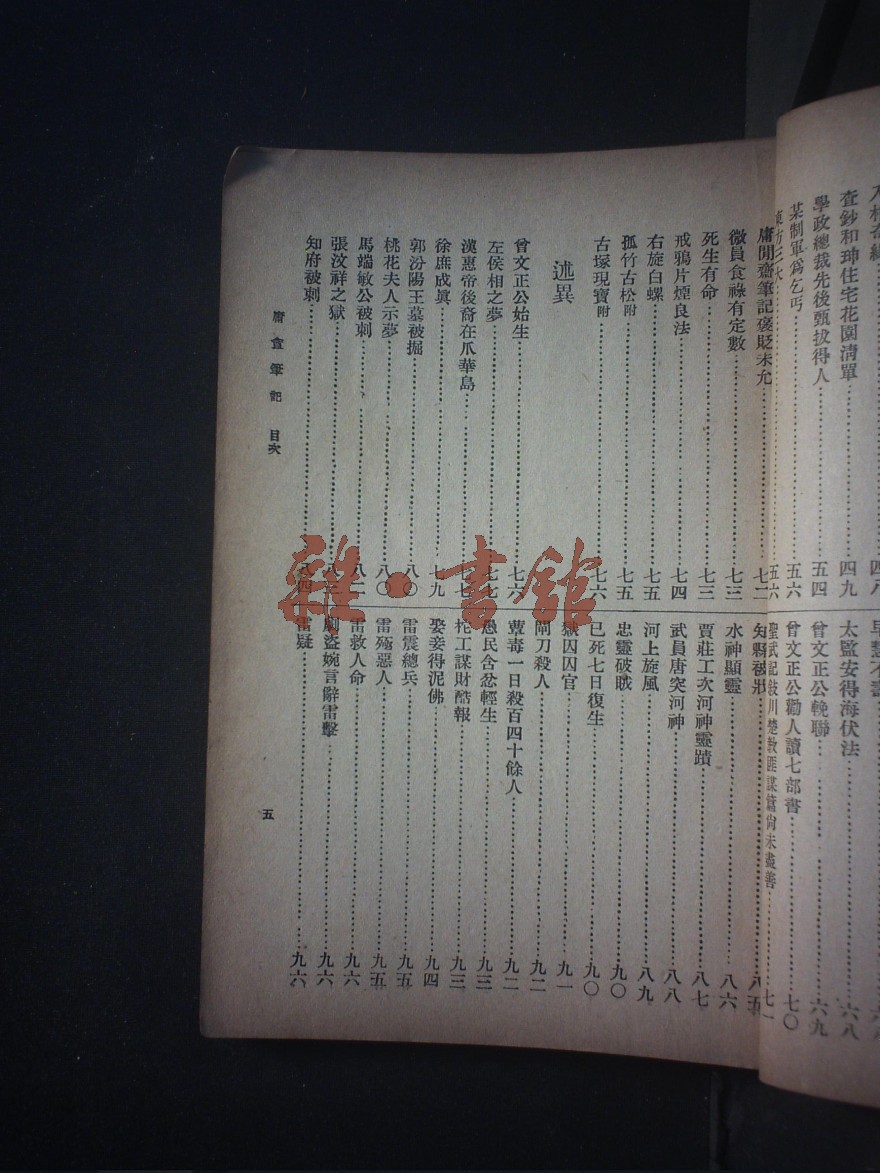 查鈔和珅住宅花園清單 四九
學政總裁先後甄拔得人 五四
某制軍爲乞丐 五六
五六
太監安得海伏法 六八
曾文正公輓聯 六九
曾文正公勸人讀七部書 七〇
聖武記敍川楚教匪謀篇尚未盡善 七一
庸閒齋筆記褒貶未允 七二
微員食祿有定數 七三
死生有命 七三
戒鴉片煙良法 七四
右旋白螺 七五
孤竹古松附 七五
古塚現寶附 七六
述異
曾文正公始生 七六
左侯相之夢 七七
漢惠帝後裔在爪華島
徐庶成眞 七九
郭汾陽王墓被掘 八〇
桃花夫人示夢 八〇
馬端敏公被刺 八二
張汶祥之獄
知府被刺 八四
知縣被戕 八五
水神顯靈 八六
賈莊工次河神靈蹟 八七
武員唐突河神 八八
河上旋風 八九
忠靈破賊 九〇
已死七日復生 九〇
獄囚囚官 九一
鬧刀殺人 九二
蕈毒一日殺百四十餘人 九二
愚民含忿輕生 九三
柁工謀財酷報 九三
娶妾得泥佛 九四
雷震總兵 九五
雷殛惡人 九五
雷救人命 九六
劇盜婉言辭雷擊 九六
雷疑 九六
庸盦筆記 目次
五
雜·書館